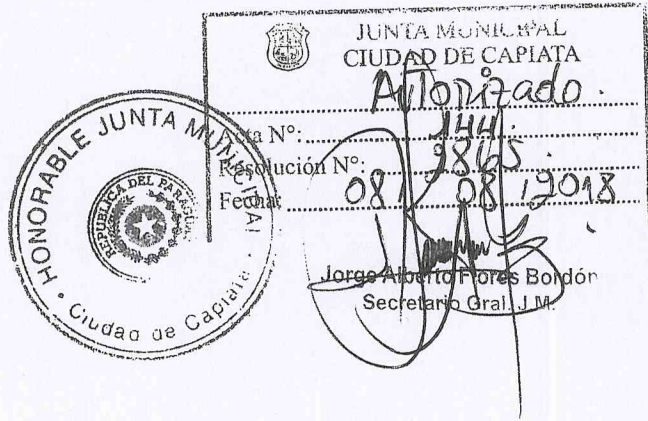 JUNTA MUNICIPAL
CIUDAD DE CAPIATA
Autorizado.
Acta N°: 144.
Resolución N°: 2865.
Fecha: 08 / 08 / 2018
Jorge Alberto Flores Bordón
Secretario Gral. J.M.
HONORABLE JUNTA MUNICIPAL
REPUBLICA DEL PARAGUAY
Ciudad de Capiata